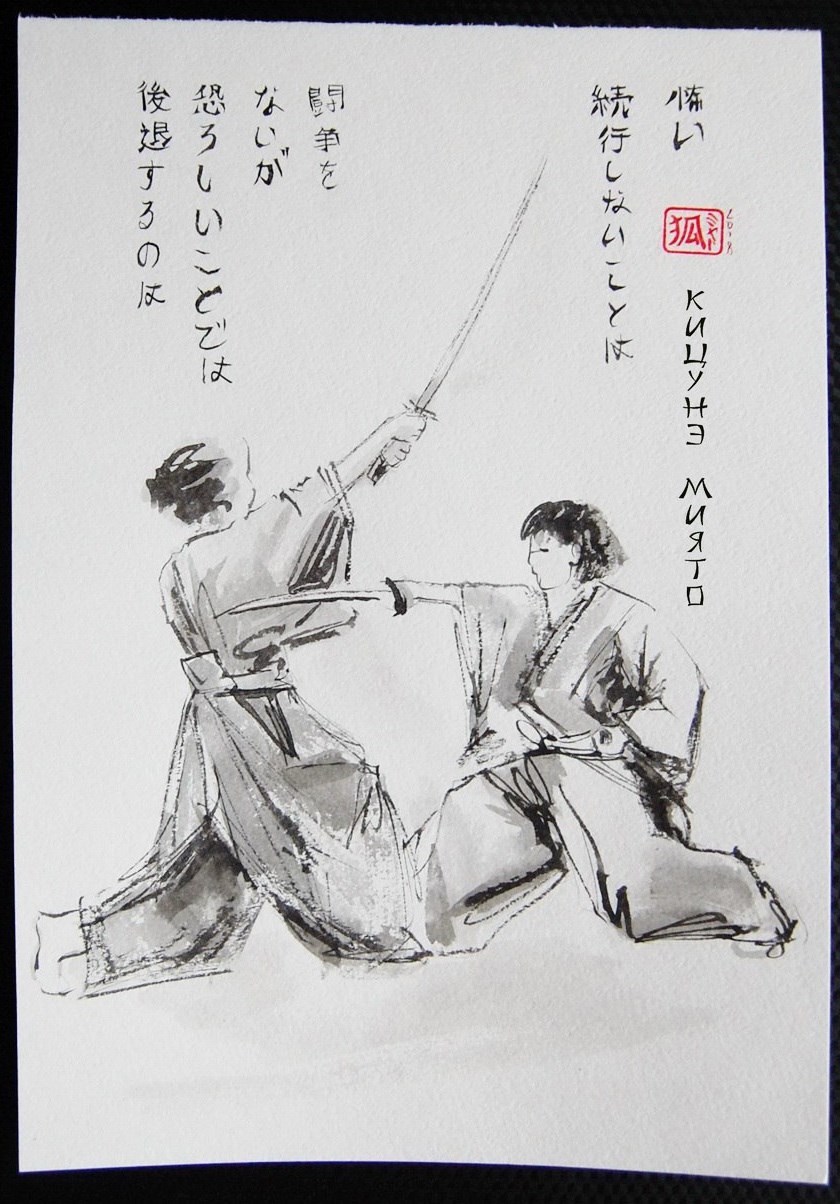 後退するのは
恐ろしいことでは
ないが
闘争を
続行しないことは
怖い
狐
2018
КИЦУНЭ МИЯТО